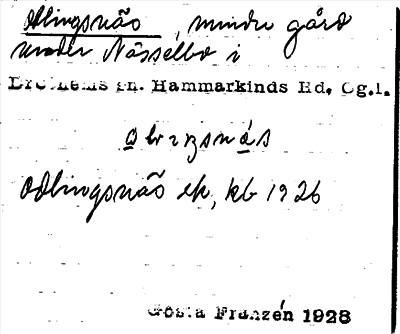 Odlingsnäs, mindre gård
under Nässelbo i
Drothems sn. Hammarkinds Hd, Ög.l.
Odlingsnäs ek, kb 1926
Gösta Franzén 1928